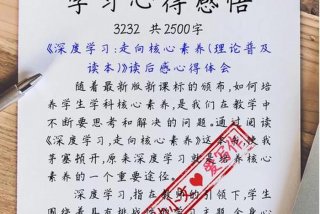 学习心得感悟
3232 共2500字
《深度学习:走向核心素养(理论普及
读本)》读后感心得体会
随着最新版新课标的颁布,如何培
养学生学科核心素养,是我们在教学中
不断要思考和解决的问题。通过阅读
《深度学习,走向核心素养》这本书,使我
茅塞顿开,原来深度学习就是培养核心
素养的一个重要途径。
深度学习,指在教师的引领下,学生
围绕着具有挑战性的学习主题,全身心